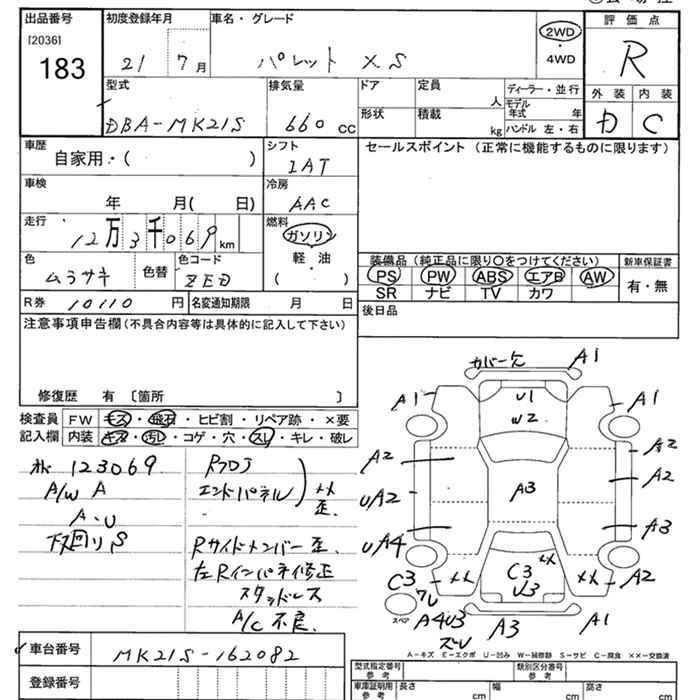 出品番号
[2036]
183
初度登録年月
21 7月
車名・グレード
パレット XS
2WD
・
4WD
評価点
R
外装 内装
D C
型式
DBA-MK21S
排気量
660 CC
ドア
形状
定員
人
積載
kg
ディーラー・並行
モデル年式 年
ハンドル 左・右
車歴
自家用・( )
シフト
IAT
セールスポイント (正常に機能するものに限ります)
車検
年 月( 日)
冷房
AAC
走行
12万3千069km
燃料
ガソリン
軽・油
( )
色
ムラサキ
色替
色コード
ZED
装備品 (純正品に限り○をつけてください)
新車保証書
PS PW ABS エアB AW
SR ナビ TV カワ
有・無
R券 10110 円
名変通知期限 月 日
後日品
注意事項申告欄(不具合内容等は具体的に記入して下さい)
修復歴 有 〔箇所 〕
検査員
記入欄
FW キズ・飛石・ヒビ割・リペア跡・×要
内装 キズ・汚レ・コゲ・穴・スレ・キレ・破レ
123069
A/W A
A・U
下回りS
Rフロア
エンドパネル
XX
歪
Rサイドメンバー歪.
左Rインパネ修正
スタッドレス
A/C 不良.
カバー欠 A1
A1 U1 A1
W2
A2 A2
A2
UA2 A3
UA4 A3
C3 XX C3 XX XX A2
U3
スペア
A4U3
A3 A1
A-キズ E-エクボ U-凹み W-補修跡 S-サビ C-腐食 XX-交換済
車台番号 MK21S-162082
登録番号
型式指定番号
参考
類別区分番号
参考
車庫証明用
参考
長さ cm
幅 cm
高さ cm